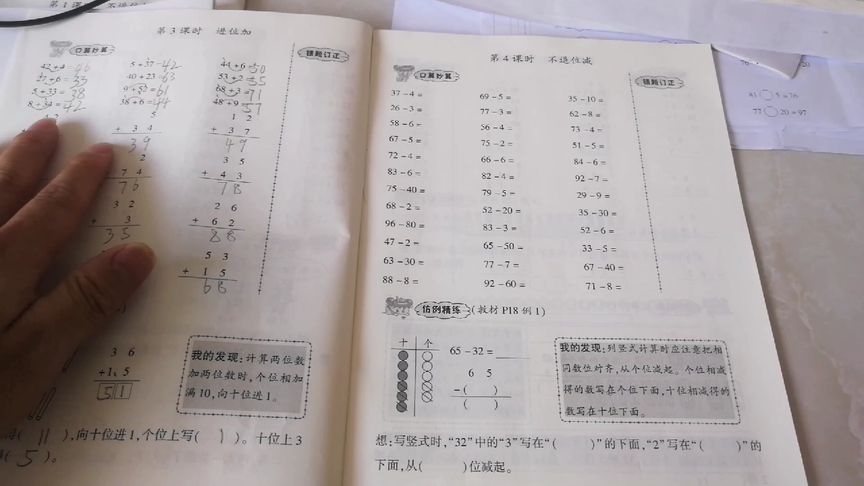 第3课时 进位加
口算妙算
错题订正
5+37=42
44+6=50
40+23=63
53+2=55
5+33=38
68+3=71
8+34=42
38+6=44
48+9=57
1 2
+ 3 4
+ 3 7
3 9
4 9
2
3 5
7 4
+ 4 3
7 6
7 8
3 2
2 6
+ 3
+ 6 2
3 5
8 8
5 3
+ 1 5
6 8
3 6
+1 5
5 1
我的发现:计算两位数
加两位数时,个位相加
满10,向十位进1。
(11),向十位进1,个位上写(1)。十位上3
(5)。
第4课时 不退位减
口算妙算
错题订正
37-4= 69-5= 35-10=
26-3= 77-3= 62-8=
58-6= 56-4= 73-4=
67-5= 75-2= 51-5=
72-4= 66-6= 84-6=
83-6= 82-4= 92-7=
75-40= 79-5= 29-9=
68-2= 52-20= 35-30=
96-80= 83-3= 52-6=
47-2= 65-50= 33-5=
63-30= 77-7= 67-40=
88-8= 92-60= 71-8=
仿例精练 (教材P18例1)
十 个
65-32=
6 5
-( )
( )
我的发现:列竖式计算时应注意把相
同数位对齐,从个位减起。个位相减
得的数写在个位下面,十位相减得的
数写在十位下面。
想:写竖式时,“32”中的“3”写在“( )”的下面,“2”写在“( )”的
下面,从( )位减起。
81○5=76
77○20=97